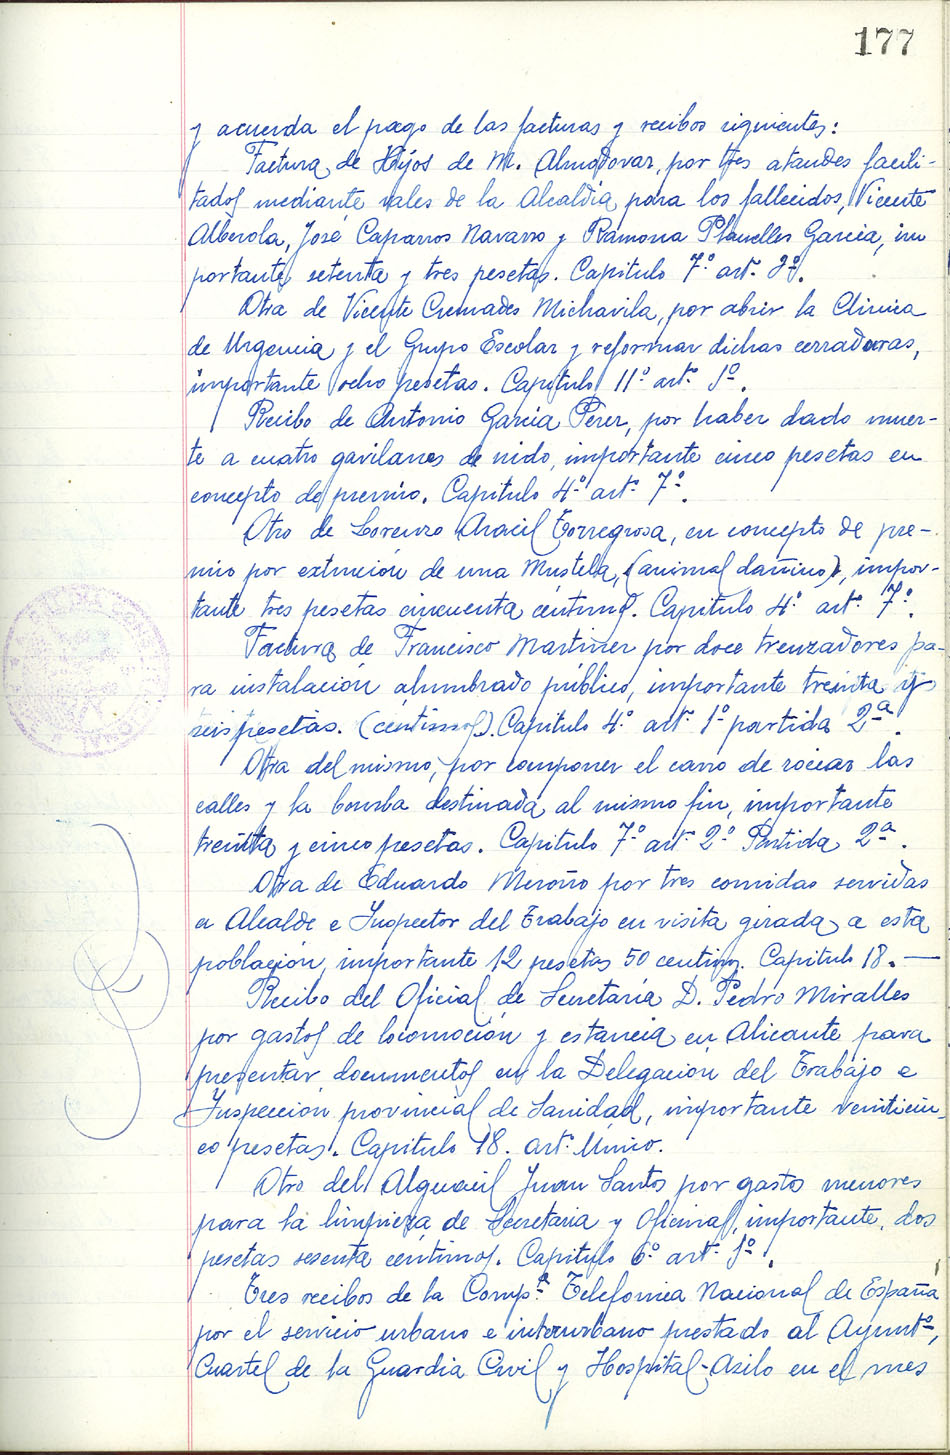 177
y acuerda el pago de las facturas y recibos siguientes:
Factura de Hijos de M. Almodovar, por tres ataudes facili-
tados mediante vales de la Alcaldía para los fallecidos, Vicente
Alberola, José Caparros Navarro y Ramona Planelles Garcia, im
portante, setenta y tres pesetas. Capitulo 7º artº 2º.
Otra de Vicente Cremades Michavila, por abrir la Clinica
de Urgencia y el Grupo Escolar y reformar dichas cerraduras,
importante ocho pesetas. Capitulo 11º artº 1º.
Recibo de Antonio García Pérez, por haber dado muer-
te a cuatro gavilanes de nido, importante cinco pesetas en
concepto de premio. Capitulo 4º artº 7º.
Otro de Lorenzo Aracil Torregrosa, en concepto de pre-
mio por extinción de una Mustela, (animal dañino), impor-
tante tres pesetas cincuenta céntimos. Capitulo 4º artº 7º.
Factura de Francisco Martinez por doce trenzadores pa-
ra instalación alumbrado público, importante treinta y
seis pesetas. (céntimos). Capitulo 4º artº 1º partida 2ª.
Otra del mismo, por componer el carro de rociar las
calles y la bomba destinada al mismo fin, importante
treinta y cinco pesetas. Capitulo 7º artº 2º Partida 2ª.
Otra de Eduardo Meroño por tres comidas servidas
a Alcalde e Inspector del Trabajo en visita girada a esta
población, importante 12 pesetas 50 centims. Capitulo 18.—
Recibo del Oficial de Secretaría D. Pedro Miralles
por gastos de locomoción y estancia en Alicante para
presentar documentos en la Delegación del Trabajo e
Inspección provincial de Sanidad, importante veinticin-
co pesetas. Capitulo 18. artº Único.
Otro del Alguacil Juan Santos por gastos menores
para la limpieza de Secretaria y Oficinas, importante, dos
pesetas sesenta céntimos. Capitulo 6º artº 1º.
Tres recibos de la Compª Telefonica Nacional de España
por el servicio urbano e interurbano prestado al Ayuntº,
Cuartel de la Guardia Civil y Hospital-Asilo en el mes